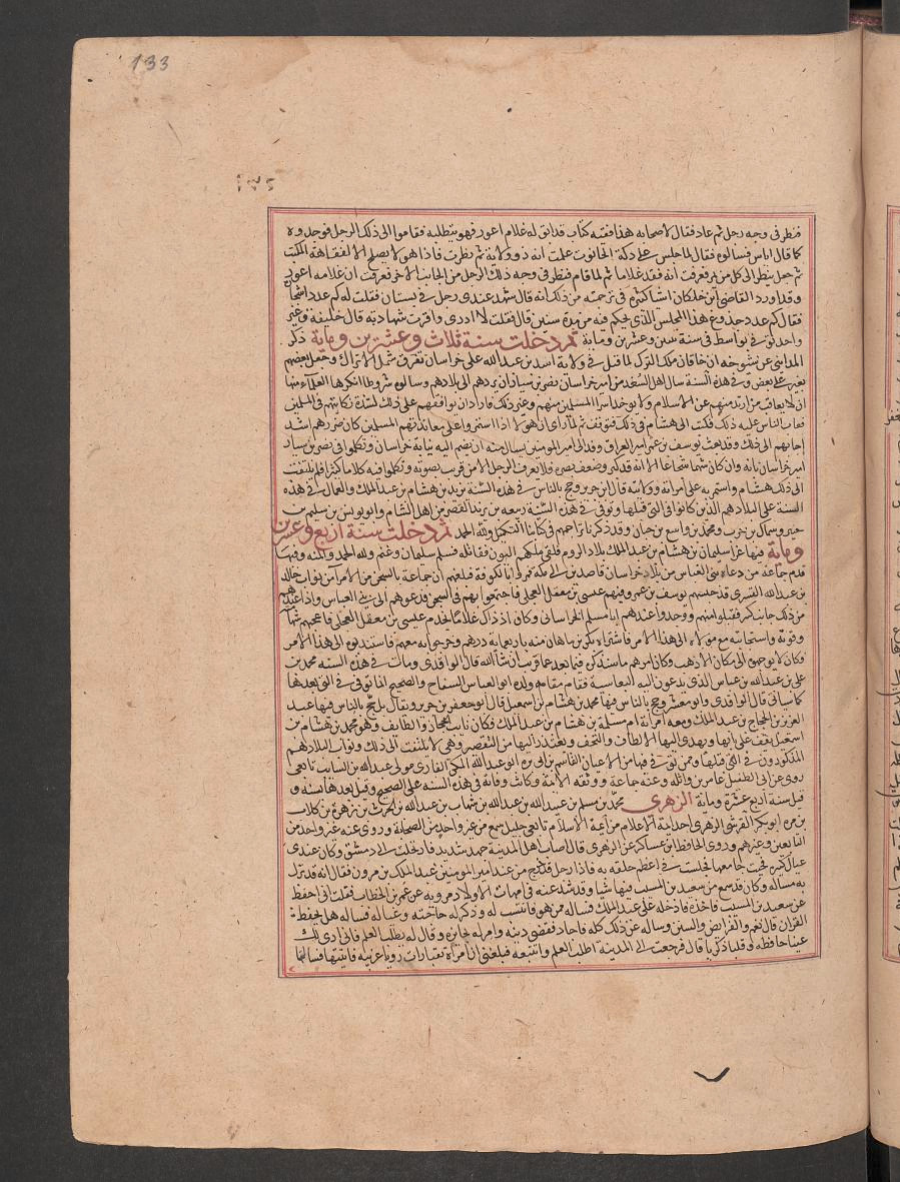 133
فنظر في وجه رجل ثم عاد فقال لاصحابه هذا فقيه كتاب قد ابق له غلام اعور فهو يتطلبه فقاموا الى ذلك الرجل فوجدوه
كما قال اياس فسالوه فقال لما جلس على دكة الحانوت علمت انه ذو ولاية ثم نظرت فاذا هو لا يصلح الا لفقاهة المكتب
ثم جعل ينظر الى كل من مر فعرفت انه فقد غلاما ثم لما قام فنظر في وجه ذلك الرجل من الجانب الاخر فعرفت ان غلامه اعور
وقد اورد القاضي ابن خلكان اشيا كثيرة في ترجمته من ذلك انه قال شهد عندي رجل في بستان فقلت له كم عدد اشجاره
فقال كم عدد جذوع هذا المجلس الذي تحكم فيه من مدة سنين قال فقلت لا ادري واقررت شهادته قال خليفة وغير
واحد توفي بواسط في سنة ثنين وعشرين وماية ثم دخلت سنة ثلاث وعشرين وماية ذكر
المدايني عن شيوخه ان خاقان ملك الترك لما قتل في ولاية اسد بن عبد الله على خراسان تفرق شمل الاتراك وجعل بعضهم
يغير على بعض وفي هذه السنة سال اهل السغد من امير خراسان نصر بن سيار ان يردهم الى بلادهم وسالوه شروطا انكرها العلماء منها
ان لا يعاقب من ارتد منهم عن الاسلام ولا يوخذ اسرا المسلمين منهم وغير ذلك فاراد ان يوافقهم على ذلك لشدة نكايتهم في المسلمين
فعاب الناس عليه ذلك فكتب الى هشام في ذلك فتوقف ثم لما راى ان هولاء اذا استمروا على معاندتهم المسلمين كان ضررهم اشد
اجابهم الى ذلك وقد بعث يوسف بن عمر امير العراق وفدا الى امير المومنين يسال منه ان يضم اليه نيابة خراسان وتكلموا في نصر بن سيار
امير خراسان بانه وان كان شهما شجاعا الا انه قد كبر وضعف بصره فلا يعرف الرجل الا من قريب بصوته وتكلموا فيه كلاما كثيرا فلم يلتفت
الى ذلك هشام واستمر به على امرته وولايته قال ابن جرير وحج بالناس في هذه السنة يزيد بن هشام بن عبد الملك والعمال في هذه
السنة على البلاد هم الذين كانوا في التي قبلها وتوفي في هذه السنة ربيعة بن يزيد القصير من اهل الشام وابو يونس بن سليم بن
جبير وسماك بن حرب ومحمد بن واسع بن حبان وقد ذكرنا تراجمهم في كتابنا التكميل ولله الحمد ثم دخلت سنة اربع وعشرين
وماية فيها غزا سليمان بن هشام بن عبد الملك بلاد الروم فلقي ملكهم اليون فقاتله فسلم سليمان وغنم ولله الحمد والمنة وفيها
قدم جماعة من دعاة بني العباس من بلاد خراسان قاصدين الى مكة فمروا بالكوفة فبلغهم ان جماعة بالسجن من الامراء من نواب خالد
بن عبد الله القسري قد حبسهم يوسف بن عمر وفيهم عيسى بن معقل العجلي فاجتمعوا بهم في السجن فدعوهم الى بني العباس واذا عندهم
من ذلك جانب كبير فقبلوا منهم ووجدوا عندهم ابا مسلم الخراساني وكان اذ ذاك غلاما يخدم عيسى بن معقل العجلي فاعجبهم شهامته
وقوته واستجابته مع مولاه الى هذا الامر فاشتراه بكير بن ماهان منه باربعماية درهم وخرجوا به معهم فاستندبوه الى هذا الامر
فكان لا يوجهونه الى مكان الا ذهب وكان من امرهم ما سنذكره فيما بعد مما قريب ان شاء الله قال الواقدي ومات في هذه السنة محمد بن
علي بن عبد الله بن عباس الذي تدعون اليه العباسية فقام مقامه ولده ابو العباس السفاح والصحيح انه انما توفي في التي بعدها
كما سياتي قال الواقدي وابو معشر وحج بالناس فيها محمد بن هشام بن اسمعيل قال ابو جعفر بن جرير ويقال بل حج بالناس فيها عبد
العزيز بن الحجاج بن عبد الملك ومعه امراته ام مسلمة بن هشام بن عبد الملك فكان نايب الحجاز والطايف وهو محمد بن هشام بن
اسمعيل يقف على بابها ويهدي اليها الالطاف والتحف ويعتذر اليها من التقصير وهي لا تلتفت الى ذلك ونواب البلاد هم
المذكورون في التي قبلها وممن توفي فيها من الاعيان القاسم بن ابي بزه ابو عبد الله المكي القاري مولى عبد الله بن السايب تابعي
روى عن ابي الطفيل عامر بن واثلة وعنه جماعة ووثقه الايمة وكانت وفاته في هذه السنة على الصحيح وقيل بعدها بسنة و
قيل سنة اربع عشرة وماية الزهري محمد بن مسلم بن عبيد الله بن عبد الله بن شهاب بن عبد الله بن الحرث بن زهرة بن كلاب
بن مره ابو بكر القرشي الزهري احد ايمة الاعلام من ايمة الاسلام تابعي جليل سمع من غير واحد من الصحابة وروى عنه غير واحد من
التابعين وغيرهم وروى الحافظ ابن عساكر عن الزهري قال اصاب اهل المدينة جهد شديد فارتحلت الى دمشق وكان عندي
عيال كثيرة فجيت جامعها فجلست في اعظم حلقة به فاذا رجل قد خرج من عند امير المومنين عبد الملك بن مروان فقال انه قد نزل
به مساله وكان قد سمع من سعيد بن المسيب فيها شيا وقد شذ عنه في امهات الاولاد مروية عن عمر بن الخطاب فقلت اني احفظ
عن سعيد بن المسيب فاخذني فادخلني على عبد الملك فساله ممن هو فانتسب له وذكر له حاجته وعياله فساله هل يحفظ
القران قال نعم والفرايض والسنن وساله عن ذلك كله فاجاد فقضى دينه وامر له بجايزة وقال له يطلب العلم فاني ارى لك
عينا حافظه وقلبا ذكيا قال فرجعت الى المدينة اطلب العلم واتتبعه فبلغني ان امراة بقبا رات رويا عجيبه فاتيتها فسالتها